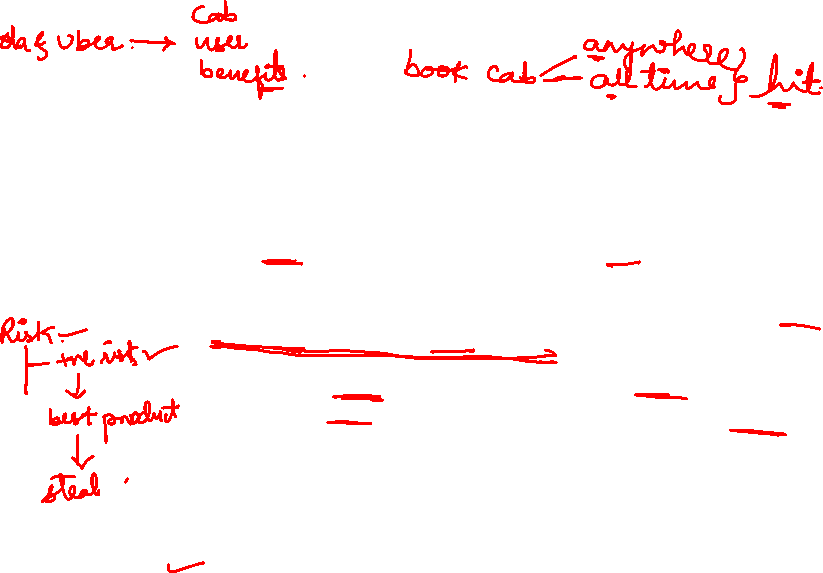 Ola & Uber → Cab
user
benefits.
book cab anywhere,
all time & hit.
Risk
+ve
best product
steal